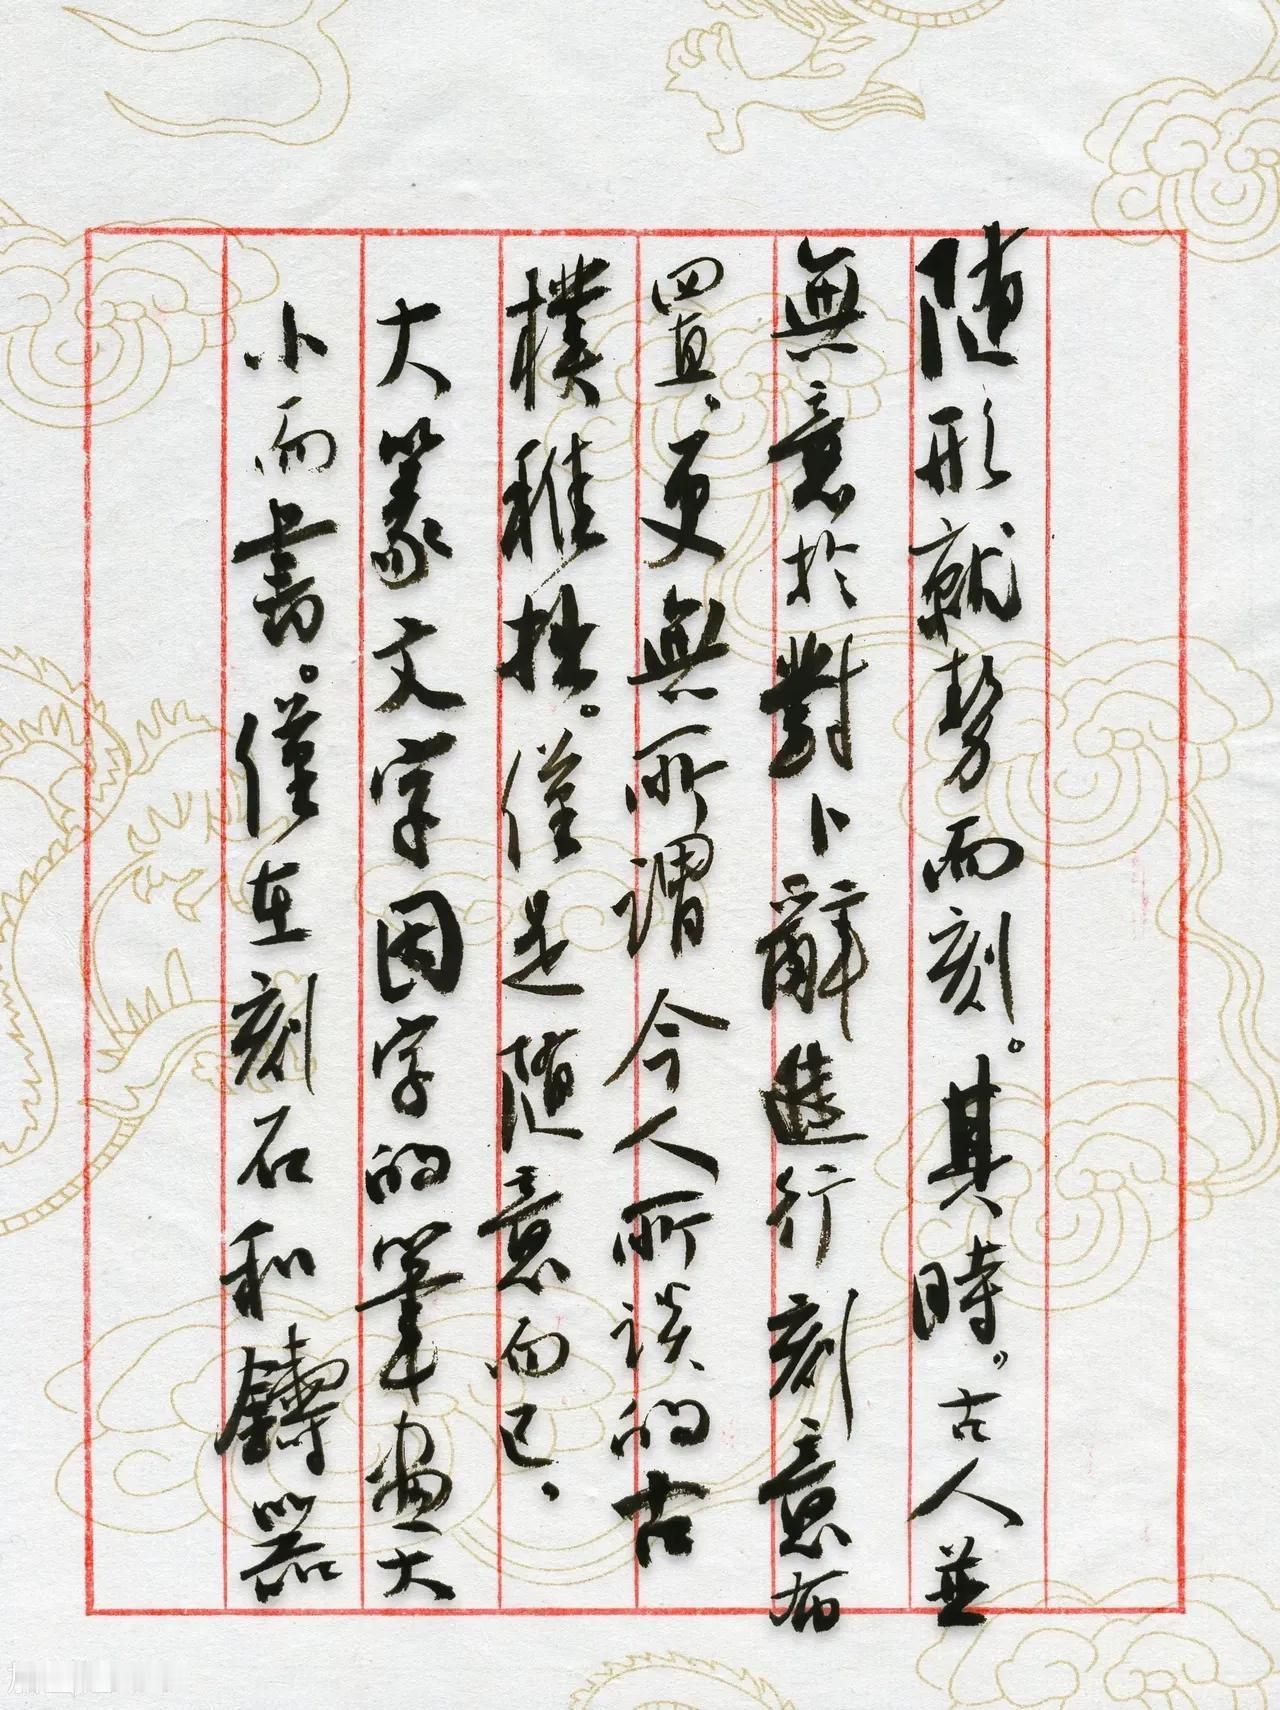 随形就勢而刻。其時。古人並
無意於對卜辭進行刻意布
置，更無所謂今人所談的古
樸稚拙。僅是随意而已，
大篆文字因字的筆畫大
小而書。僅在刻石和鑄器